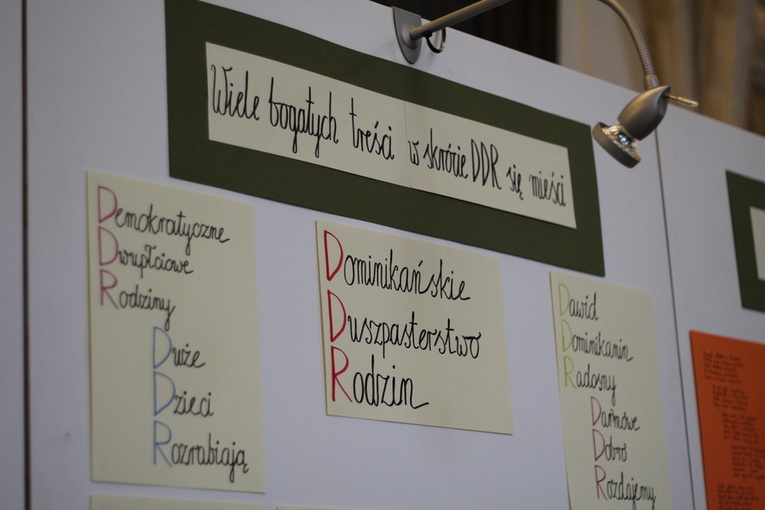 Wiele bogatych treści w skrócie DDR się mieści
Demokratyczne
Dwupłciowe
Rodziny
Duże
Dzieci
Rozrabiają
Dominikańskie
Duszpasterstwo
Rodzin
Dawid
Dominikanin
Radosny
Darmowe
Dobro
Rozdajemy